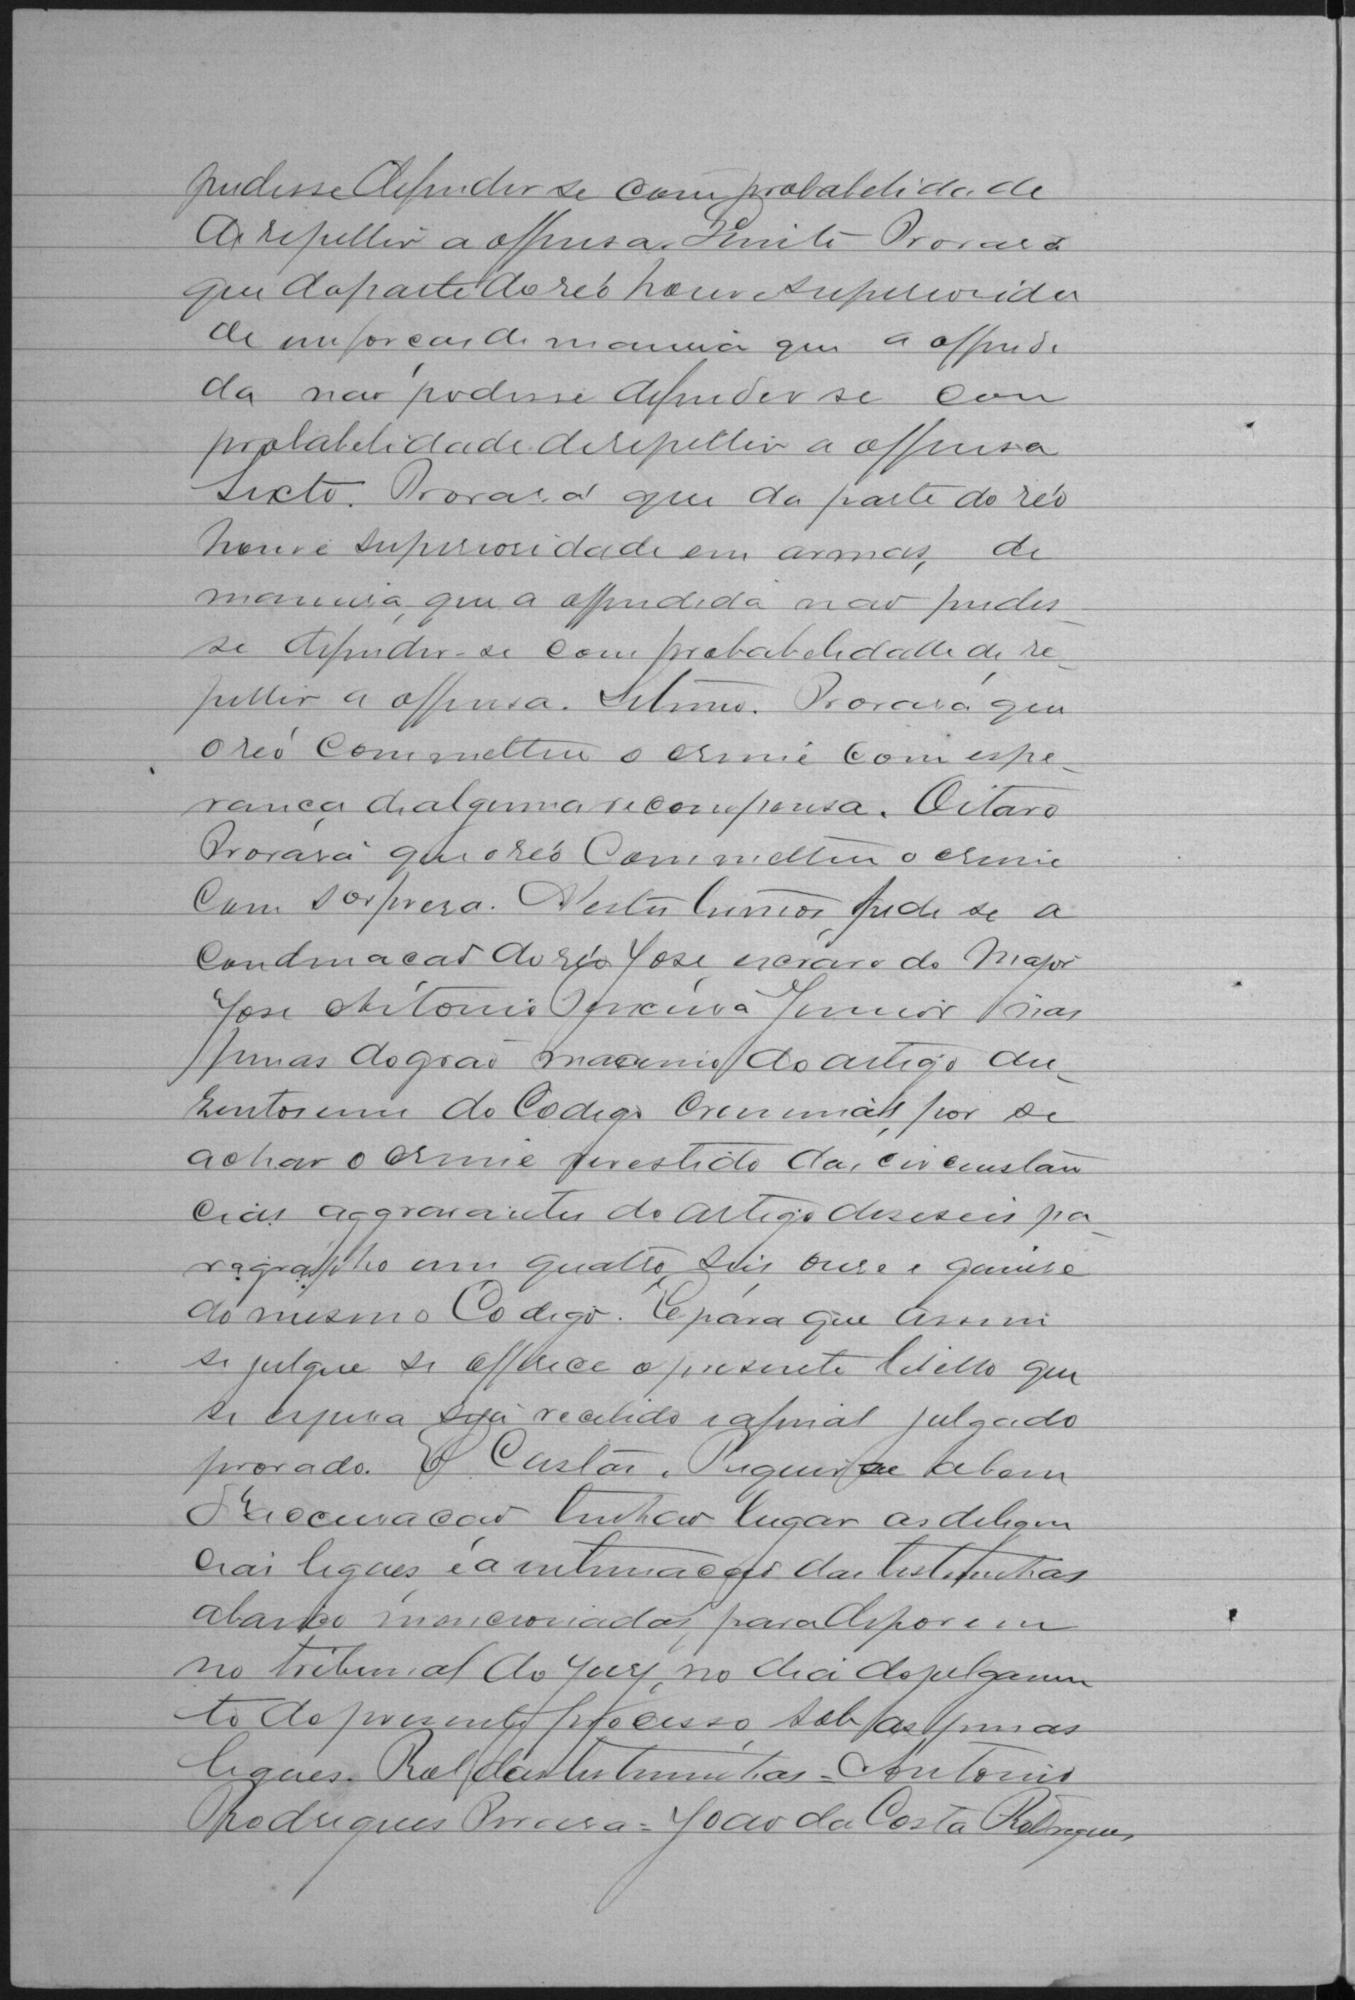 pudesse defender se com probabelidade
de repellir a offensa. Quinto Provará
que da parte do réo houve superiorida
de em forças de maneira que a offendi
da não podesse defender se com
probabelidade de repellir a offensa
Sexto. Provará que da parte do réo
houve superioridade em armas, de
maneira, que a offendida não pudes-
se defender-se com probabelidade de re-
pellir a offensa. Setimo. Provará que
o réo commetteu o crime com espe-
rança de alguma recompensa. Oitavo
Provará que o réo commetteu o crime
com sorpresa. Nestes termos, pede se a
condemnação do réo José, escravo do Major
José Antonio Junior nas
penas do grao maximo do artigo du-
zentos e um do Codego Creminal, por se
achar o crime revestido das circunstan
cias aggravantes do artigo deseseis pa-
ragrapho um quatro, seis onze e quinse
do mesmo Codego. E para que assim
se julgue se offerece o presente libello que
se espera seja recebido e afinal julgado
provado. E Custas. Requer se a bem
da accusação tenhão lugar as deligen
cias legaes e a intimação das testemunhas
abaixo mencionadas, para deporem
no tribunal do Jury, no dia do julgamen
to do presente processo, sob as penas
legaes. Rol das testemunhas = Antonio
Rodrigues Pereira = João da Costa Rodrigues